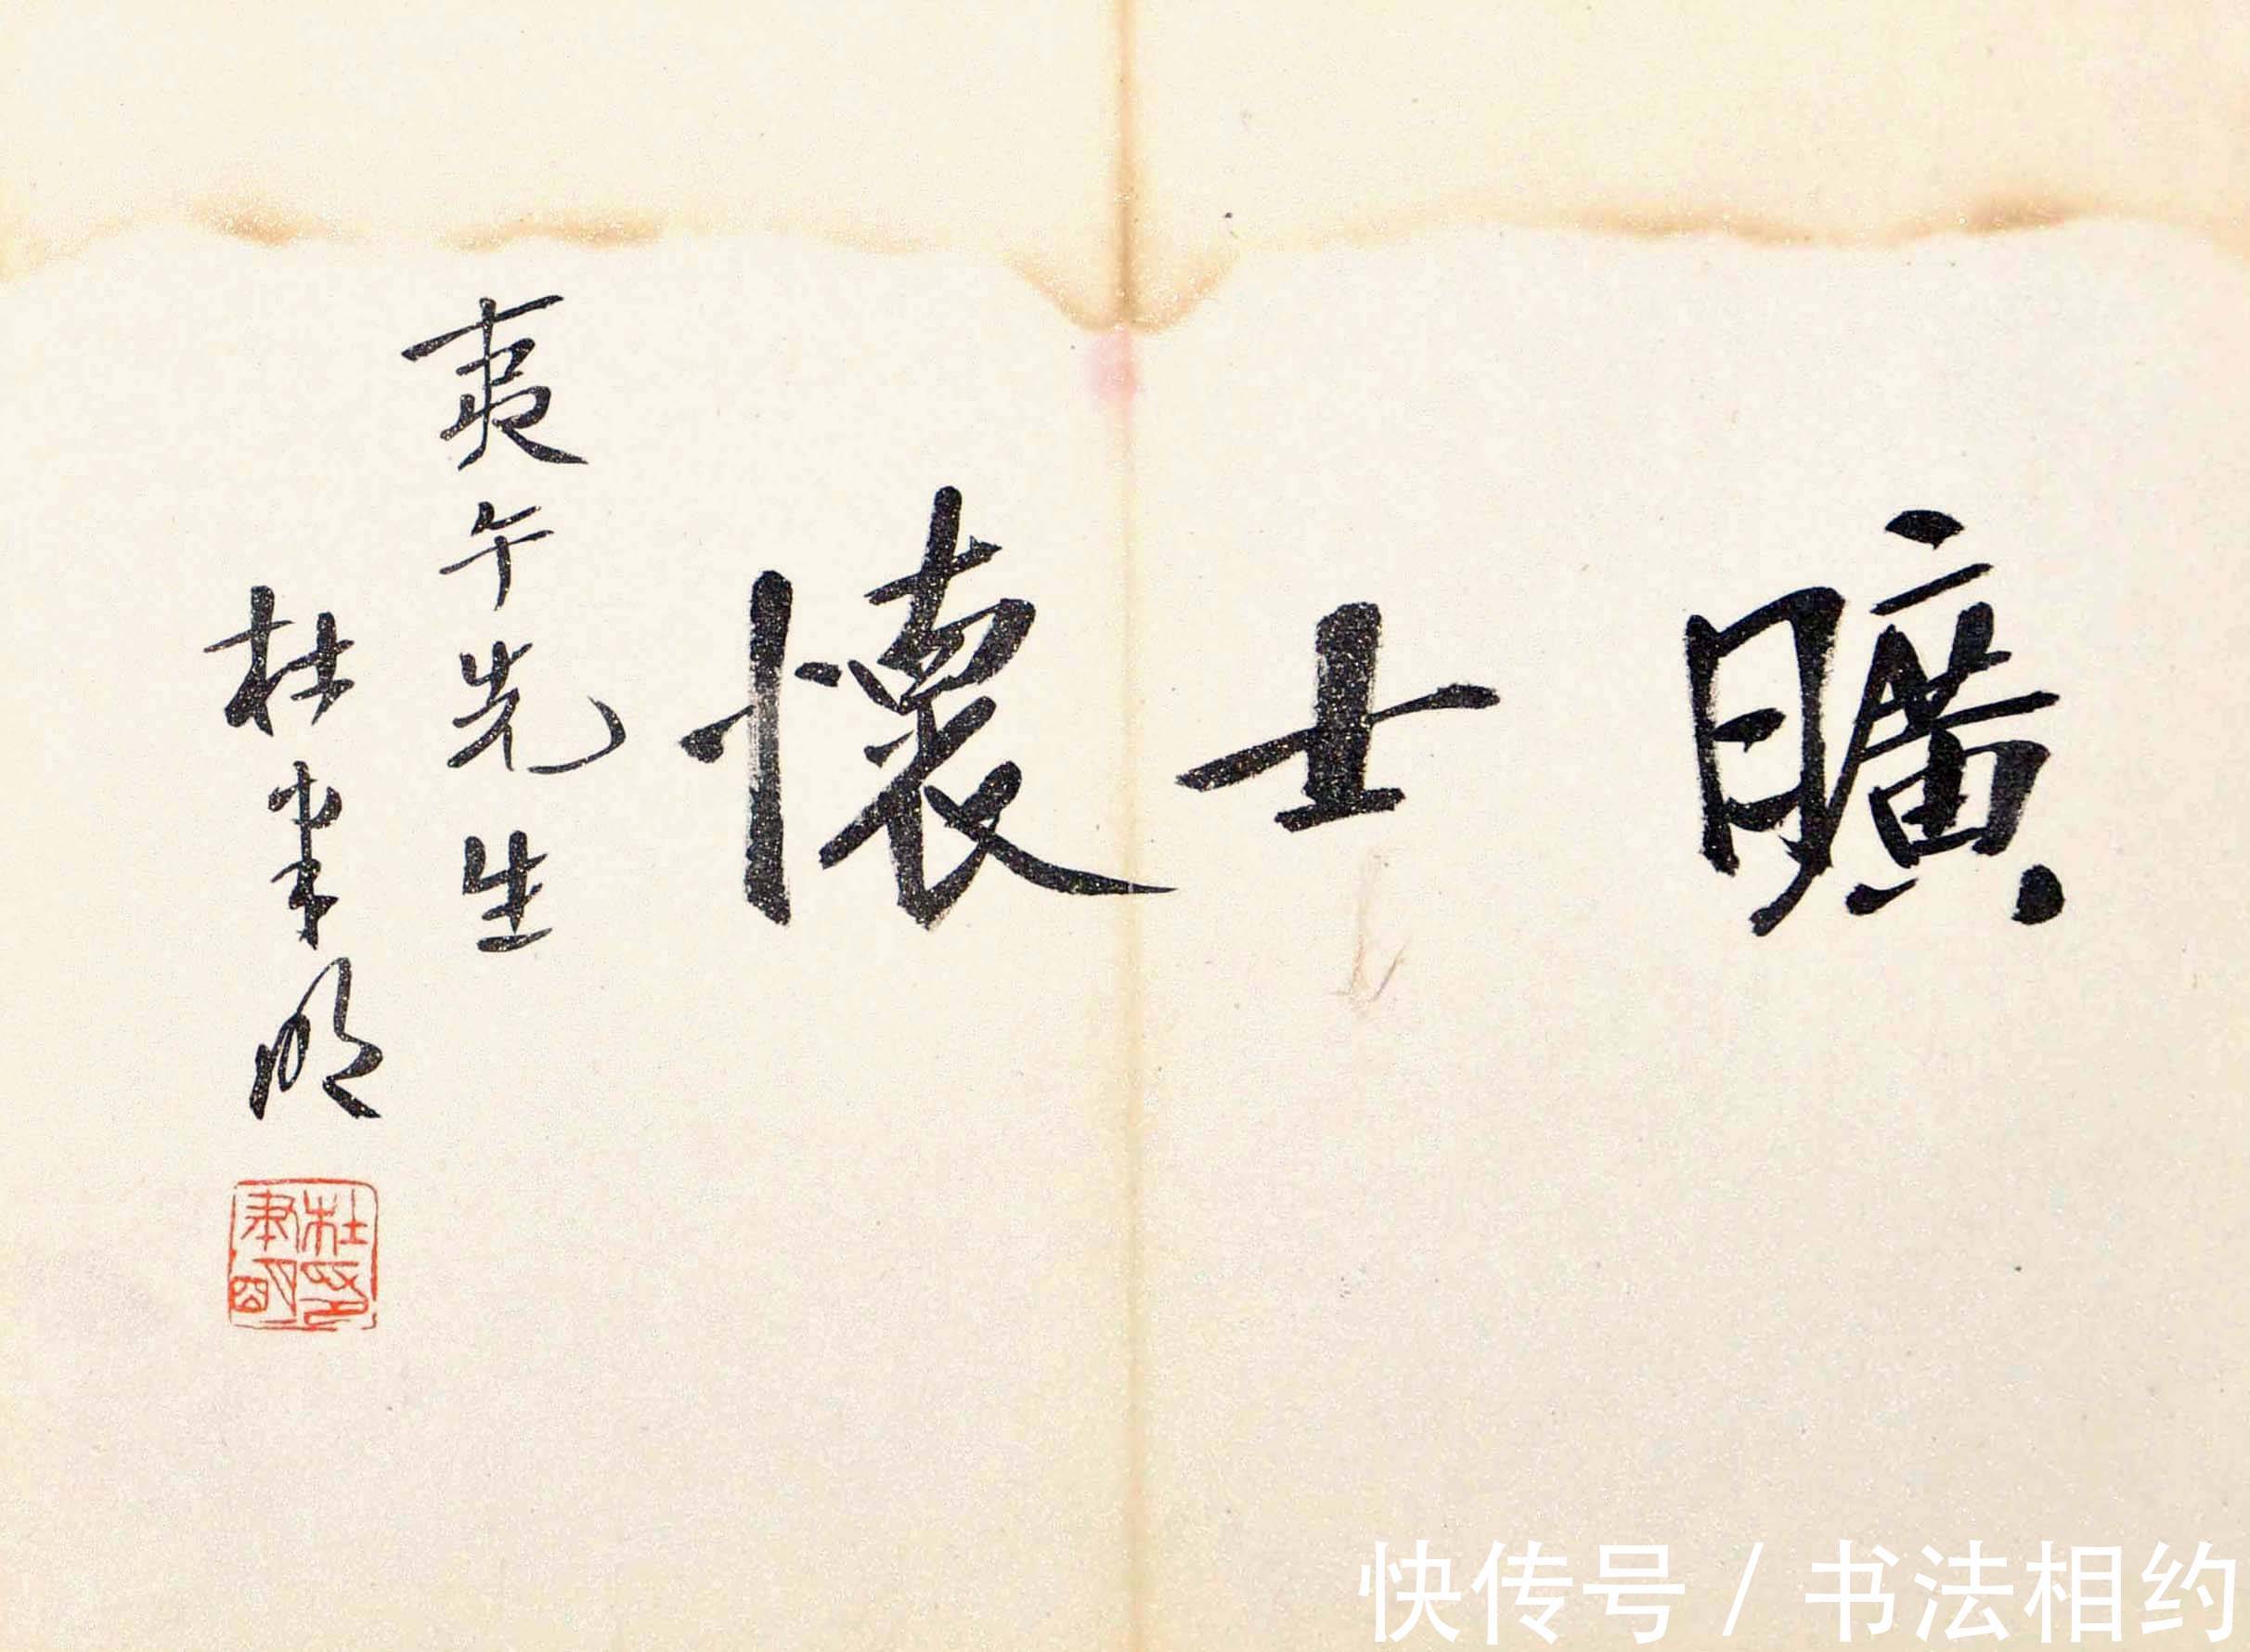 曠士懷
夷午先生
杜聿明
杜聿明印
快传号 / 书法相约